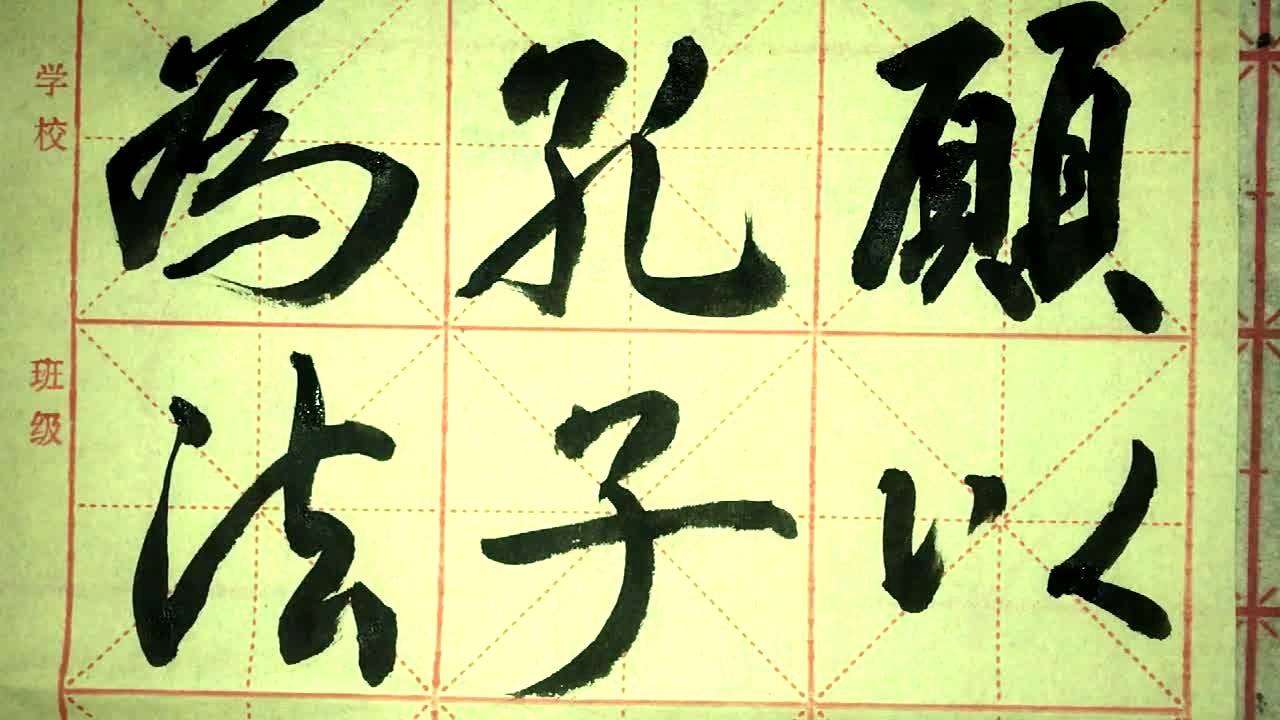 願以
孔子
為法
学校
班级